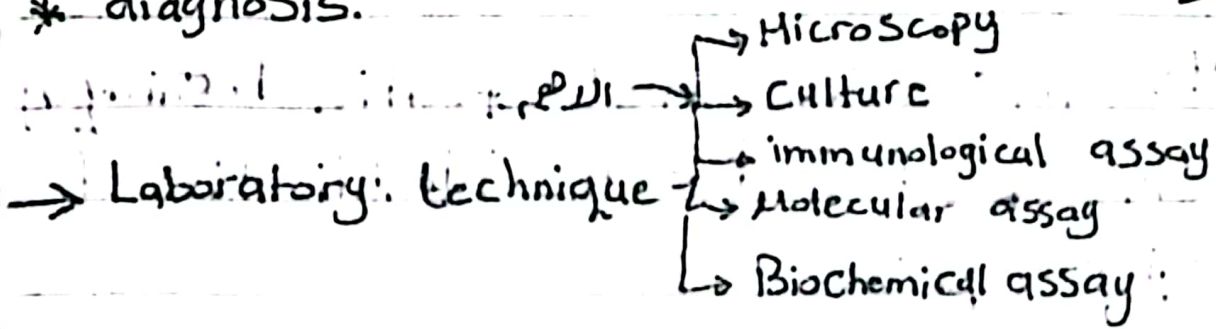 * diagnosis.
→ Microscopy
الاهم → → Culture
→ immunological assay
→ Laboratory technique → Molecular assay
→ Biochemical assay :